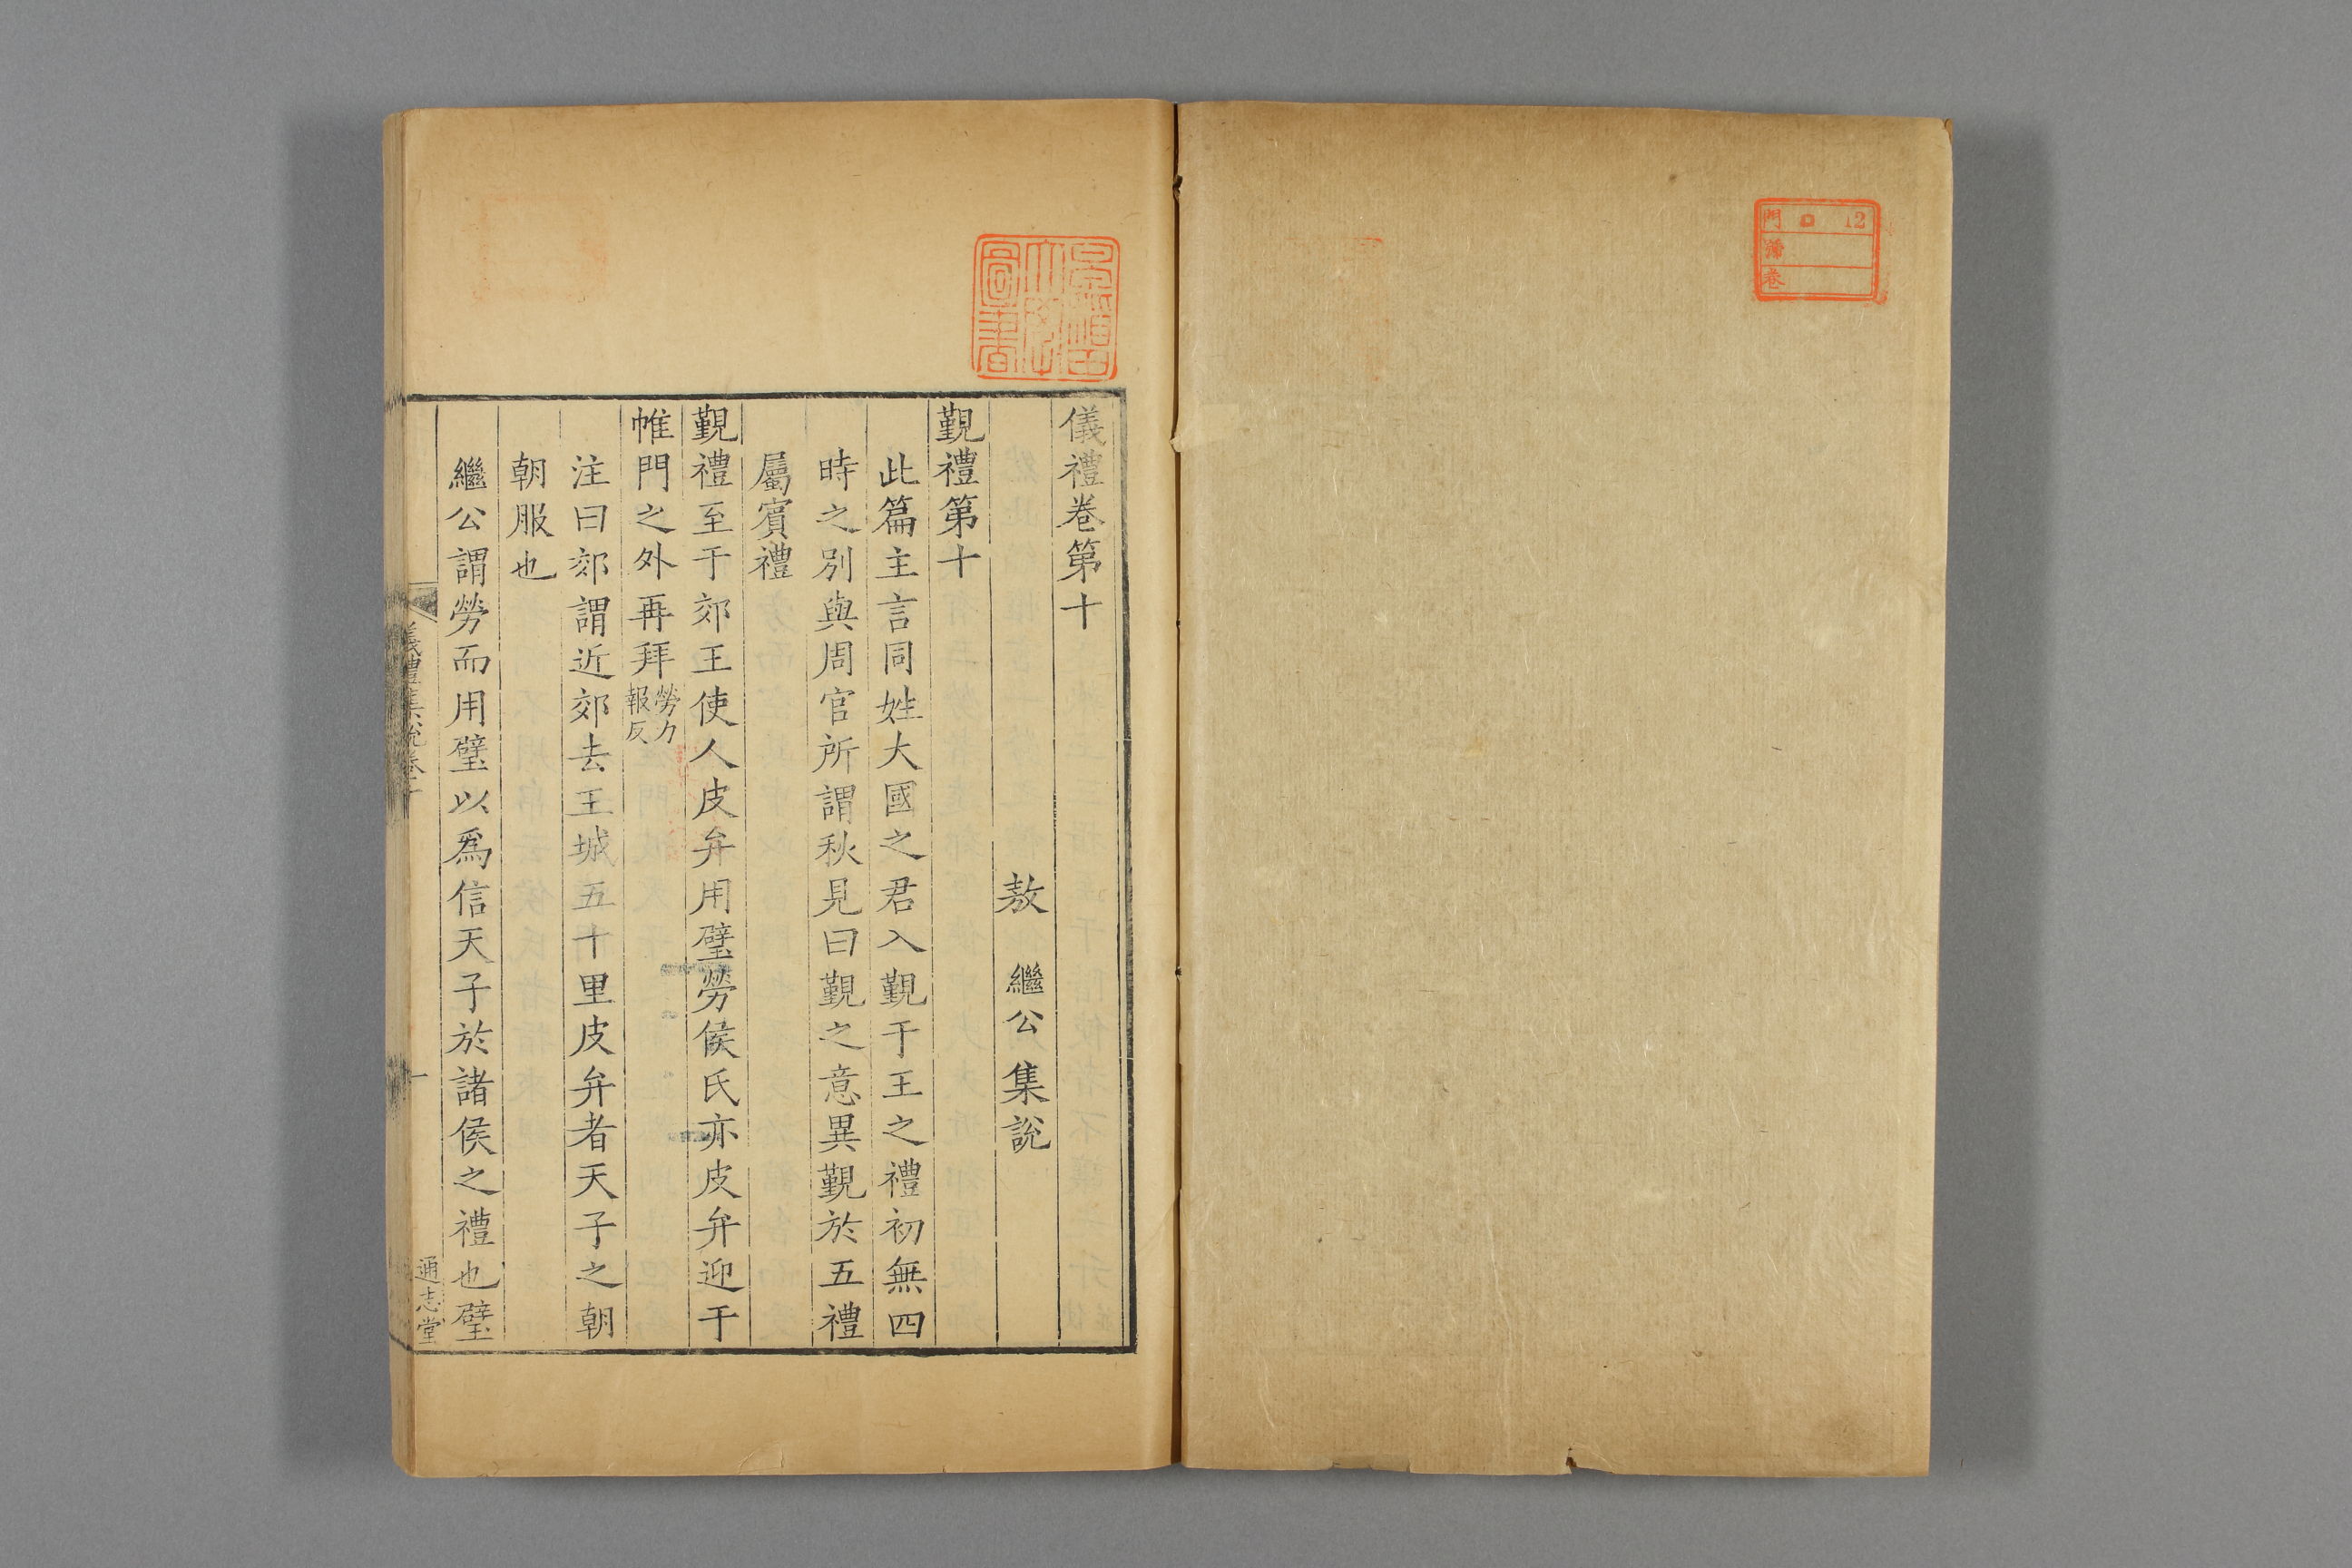 門 12
號
卷
儀禮卷第十
敖 繼公 集說
覲禮第十
此篇主言同姓大國之君入覲于王之禮初無四
時之別與周官所謂秋見曰覲之意異覲於五禮
屬賓禮
覲禮至于郊王使人皮弁用璧勞侯氏亦皮弁迎于
帷門之外再拜勞力報反
注曰郊謂近郊去王城五十里皮弁者天子之朝
朝服也
繼公謂勞而用璧以爲信天子於諸侯之禮也璧
儀禮集說卷十
一
通志堂